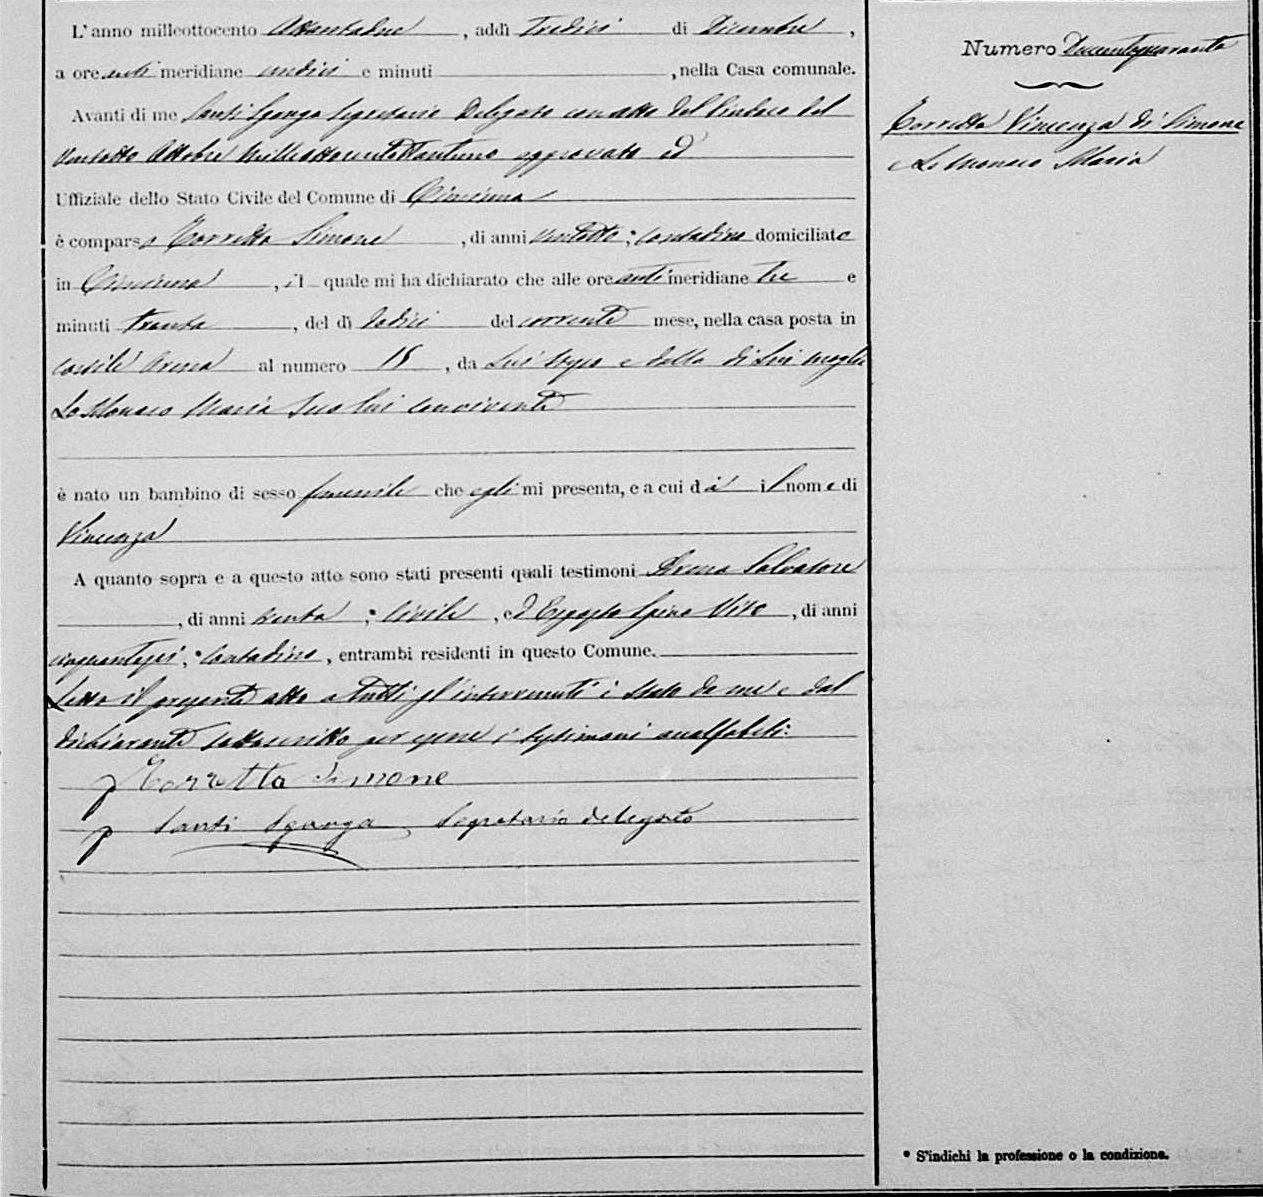 L'anno milleottocento Ottantadue, addì Tredici di Dicembre,
a ore anti meridiane undici e minuti, nella Casa comunale.
Avanti di me Santi Sganga Segretario Delegato con atto del Sindaco del
Ventotto Ottobre Milleottocentottantuno approvato ed
Uffiziale dello Stato Civile del Comune di Ciminna
è comparso Torretta Simone, di anni ventotto; *contadino domiciliato
in Ciminna, il quale mi ha dichiarato che alle ore anti meridiane tre e
minuti trenta, del dì dodici del corrente mese, nella casa posta in
cortile Arena al numero 15, da Lui stesso e dalla di Lui moglie
Lo Monaco Maria seco lui convivente
è nato un bambino di sesso femminile che egli mi presenta, e a cui dà il nome di
Vincenza
A quanto sopra e a questo atto sono stati presenti quali testimoni Arena Salvatore
, di anni trenta; *civile, ed Spina Vito, di anni
cinquantasei, *contadino, entrambi residenti in questo Comune.
Letto il presente atto a tutti gl'intervenuti è stato da me e dal
dichiarante sottoscritto per essere i testimoni analfabeti:
Torretta Simone
Santi Sganga Segretario delegato
Numero Duecentoquaranta
Torretta Vincenza di Simone
e Lo Monaco Maria
* S'indichi la professione o la condizione.